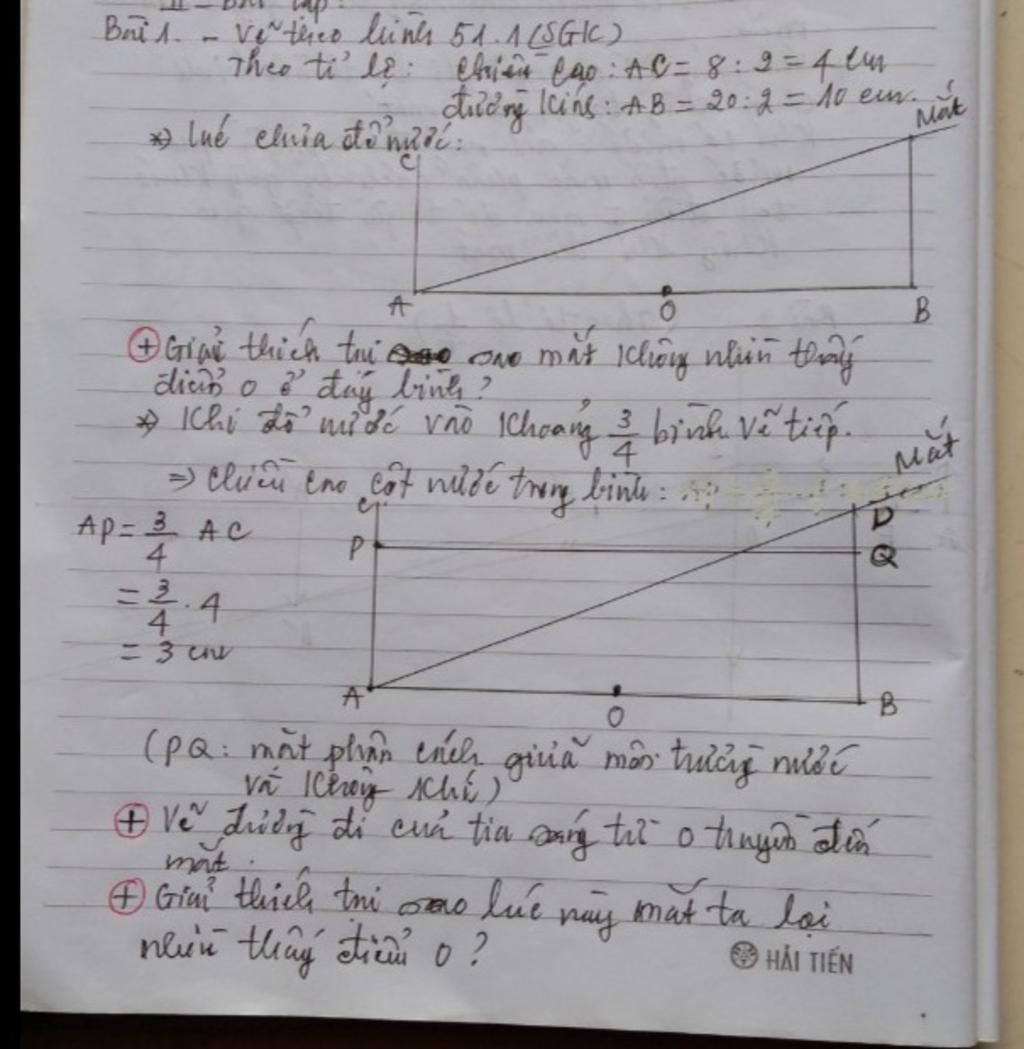 II - Bài tập:
Bài 1. - Vẽ theo hình 51.1 (SGK)
Theo tỉ lệ: chiều cao: AC = 8 : 2 = 4 cm
đường kính: AB = 20 : 2 = 10 cm.
*) lúc chưa đổ nước:
Mắt
C
A
O
B
+ Giải thích tại sao mắt không nhìn thấy
điểm O ở đáy bình?
*) Khi đổ nước vào khoảng 3/4 bình vẽ tiếp.
=> chiều cao cột nước trong bình:
Mắt
AP = 3/4 AC
= 3/4 . 4
= 3 cm
C
D
P
Q
A
O
B
(PQ: mặt phân cách giữa môi trường nước
và không khí)
+ Vẽ đường đi của tia sáng từ O truyền đến
mắt.
+ Giải thích tại sao lúc này mắt ta lại
nhìn thấy điểm O?
HẢI TIẾN